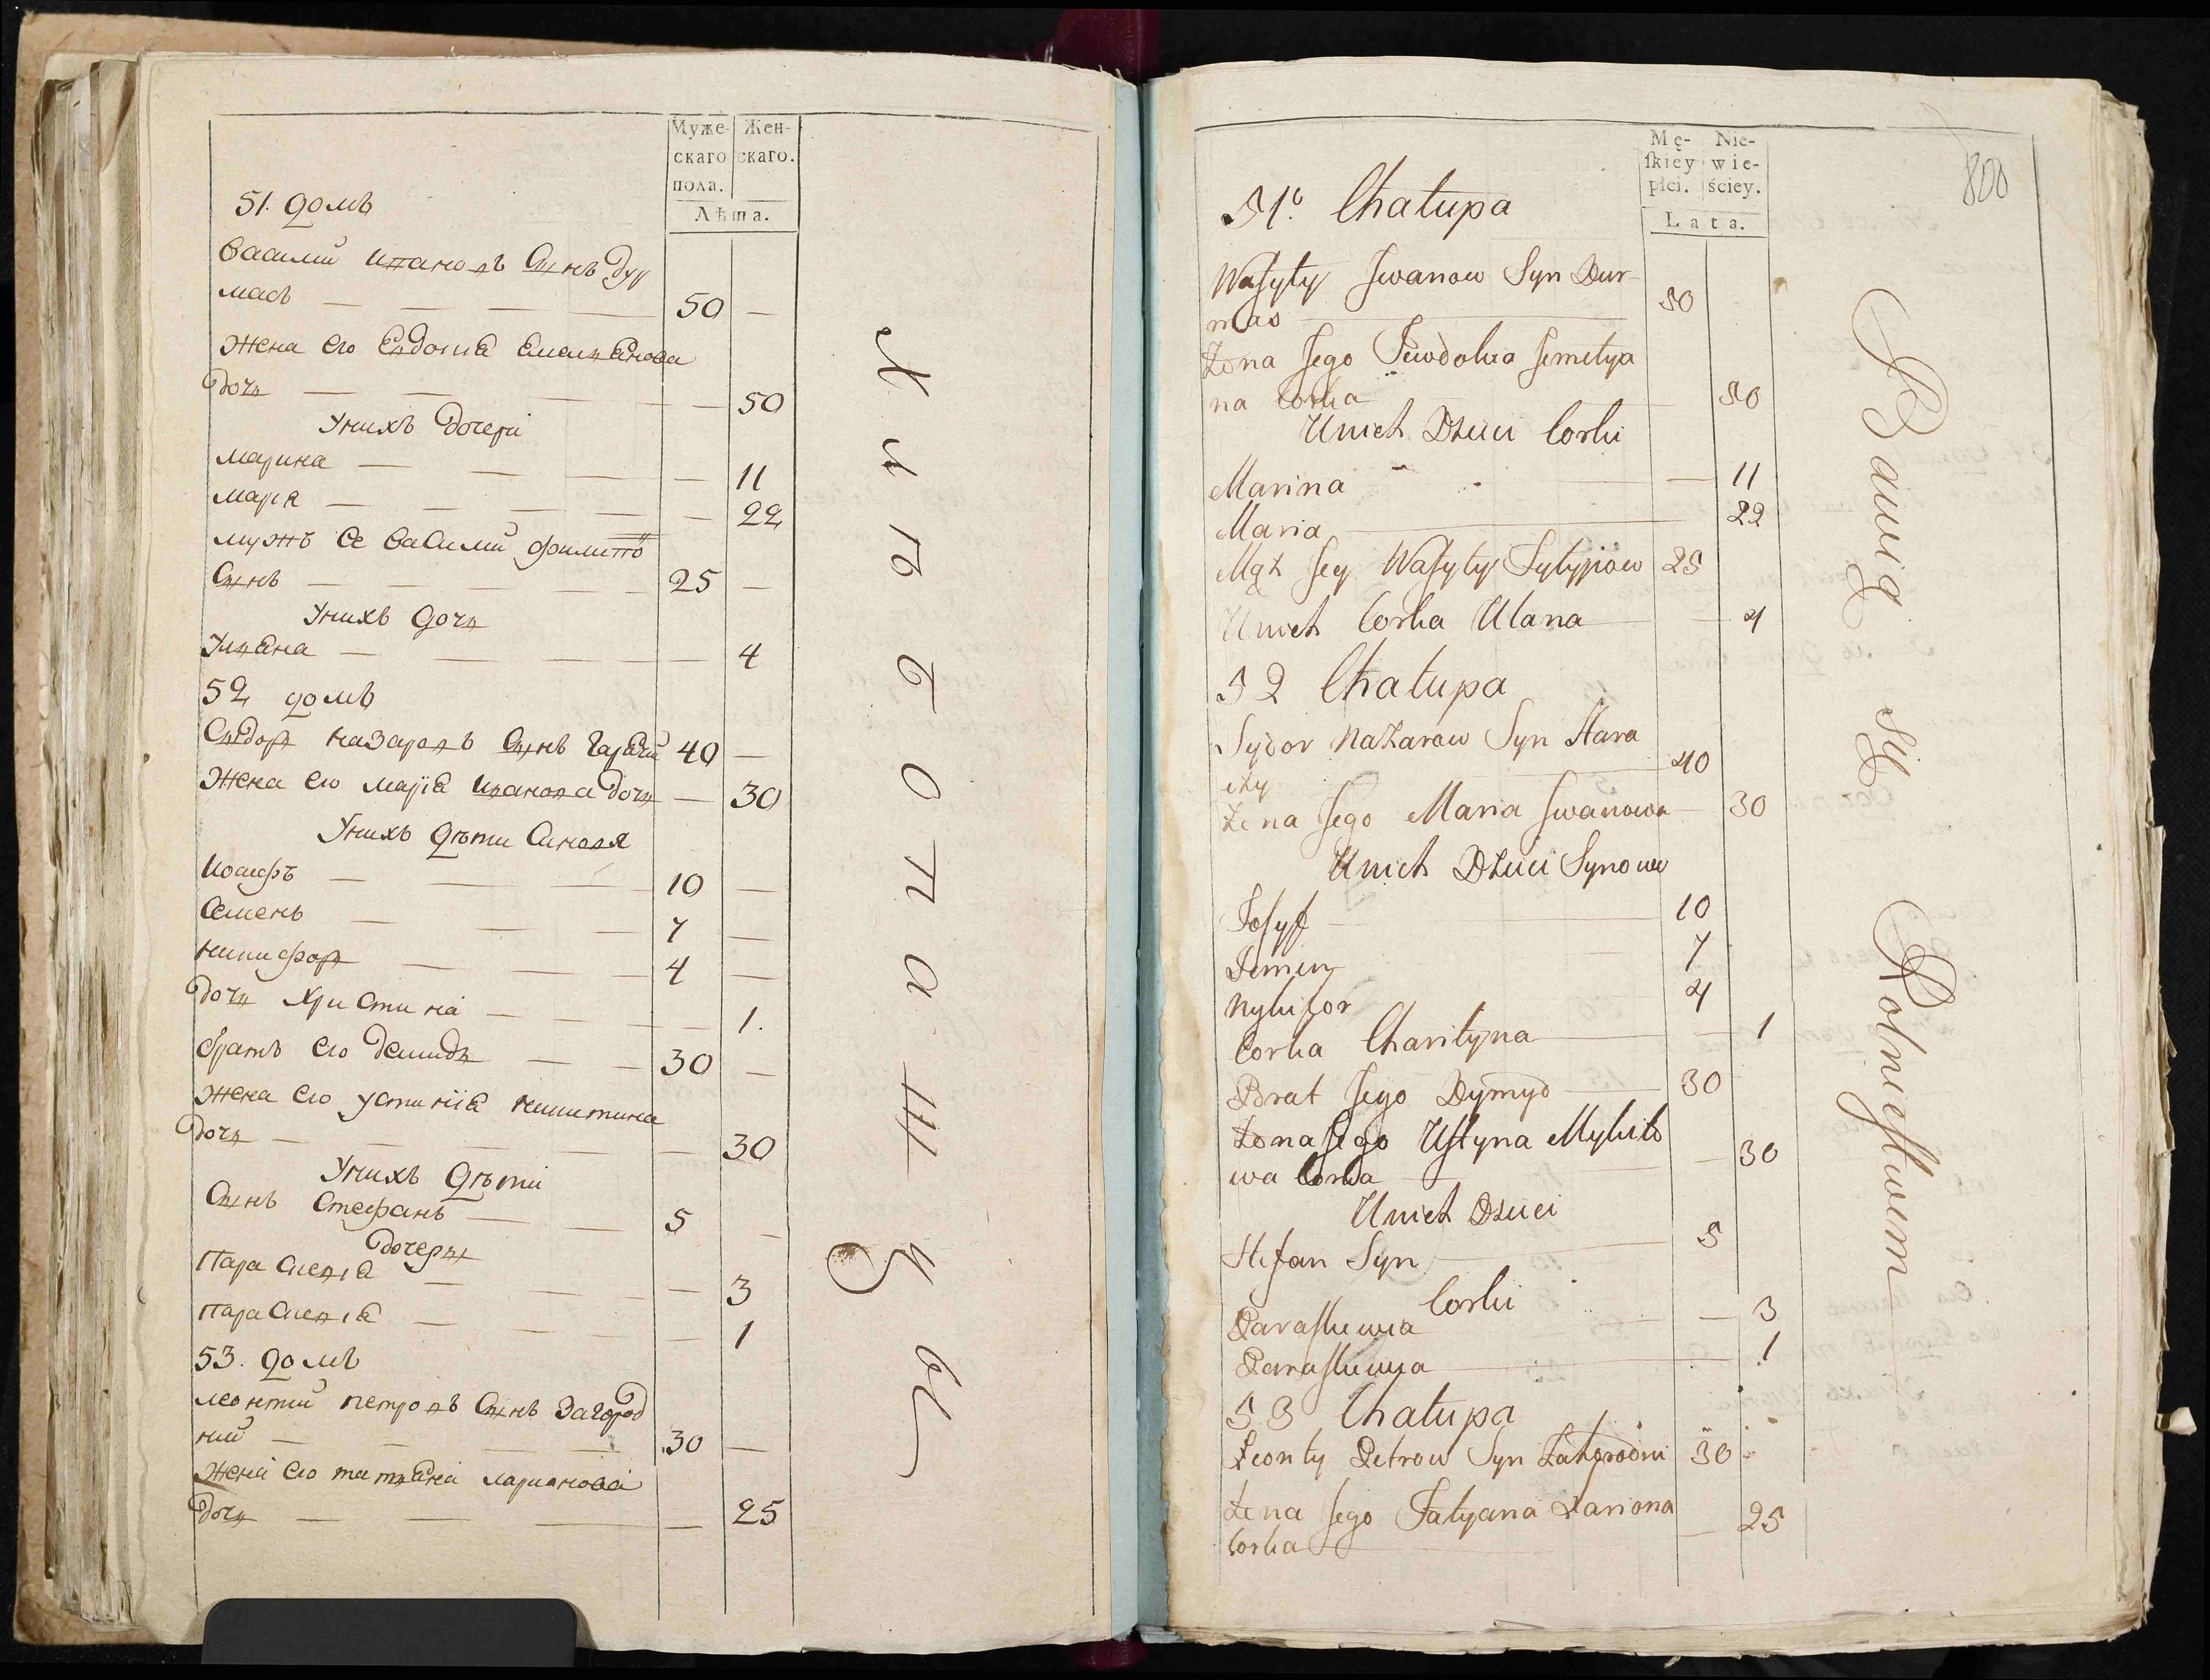 Муже-
скаго
пола.
Жен-
скаго.
Лѣта.
51. домъ
Василий Ивановъ Сынъ Дур
масъ — 50 —
жена его Евдокиѣ Емельѣнова
дочь — 50
Унихъ дочери
марина — 11
мариѣ — 22
мужъ Ее Василий филипо
Сынъ — 25 —
Унихъ дочь
Ульѣна — 4
52 домъ
Сыдоръ назаровъ Сынъ 40 —
жена его Мариѣ Иванова дочь — 30
Унихъ дѣти Синовя
Иосифъ — 10 —
Семенъ — 7 —
никифоръ — 4 —
дочь Християна — 1.
братъ его демидъ — 30 —
жена его устиниѣ никитина
дочь — 30
Унихъ дѣти
Сынъ Стефанъ — 5 —
дочеры
Параскевиѣ — 3
параскевиѣ — 1
53. домъ
леонтий петровъ Сынъ Загород
ний — 30 —
жена его татьѣна ларионова
дочь — 25
Хлѣбопашцы
Mę-
ſkiey
płci.
Nie-
wie-
ściey.
Lata.
800
51. Chałupa
Waſyły Jwanow Syn Dur-
mas 50
Żona Jego Jewdokia Jemelya
na Corka 50
Unich Dzieci Corki
Marina — 11
Maria 22
Mąż Jey Waſyly 25
Unich Corka Ulana — 4
52 Chałupa
Sydor Nazarow Syn Hara
40
Żena Jego Maria Jwanowa 30
Unich Dzieci Synowe
Joſyf 10
Semen 7
Nykifor 4
Corka Charityna — 1
Brat Jego Dymyd 30
Żona Jego Uſtyna Mykito
wa Corka — 30
Unich Dzieci
Stefan Syn 5
Corki
Paraſkewia — 3
Paraſkewia — 1
53 Chałupa
Leonty Petrow Syn Zahorodni 30
Żena Jego Tatyana Lariona
Corka — 25
Bawią się Rolnictwem